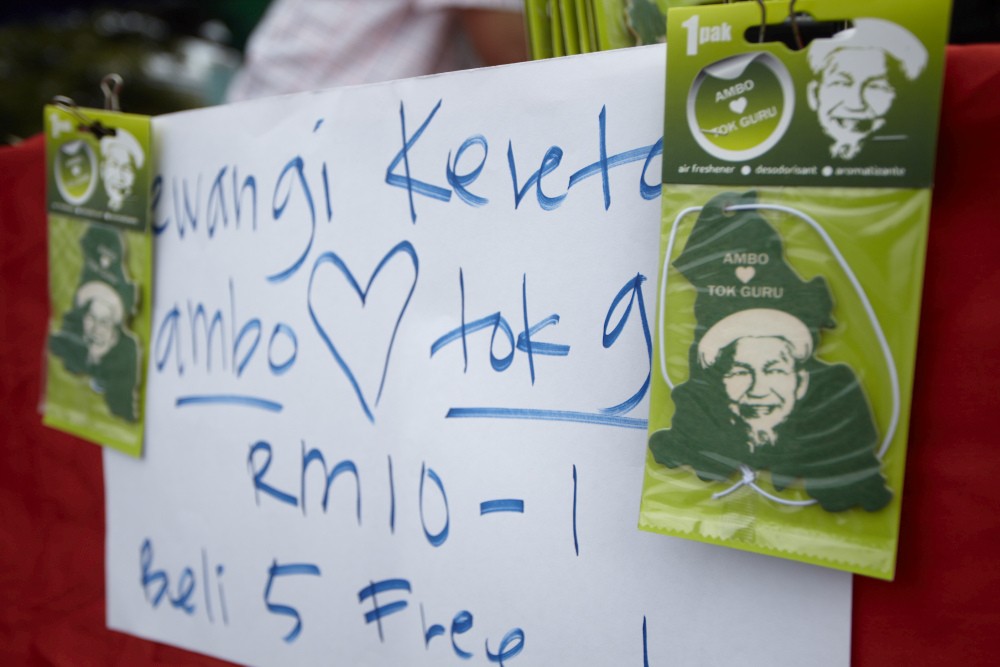 ewangi Kereta
ambo tok g
RM10 - 1
Beli 5 Free 1
1 pak
AMBO
TOK GURU
air freshener desodorisant aromatizante
AMBO
TOK GURU